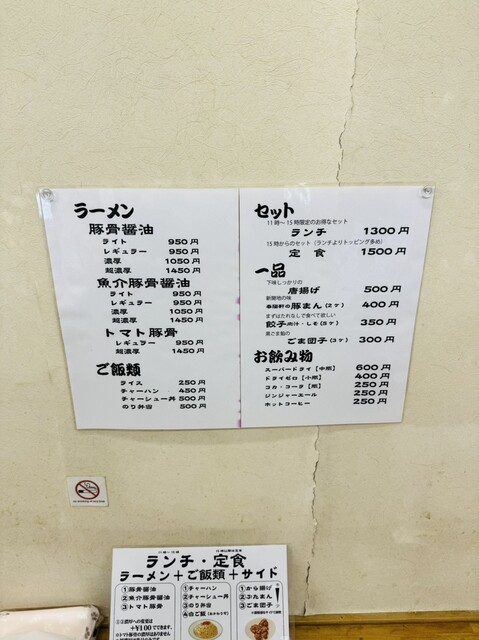 ラーメン
豚骨醤油
ライト 950円
レギュラー 950円
濃厚 1050円
超濃厚 1450円
魚介豚骨醤油
ライト 950円
レギュラー 950円
濃厚 1050円
超濃厚 1450円
トマト豚骨
レギュラー 950円
超濃厚 1450円
ご飯類
ライス 250円
チャーハン 450円
チャーシュー丼 500円
のり弁当 500円
セット
11時～15時限定のお得なセット
ランチ 1300円
15時からのセット（ランチよりトッピング多め）
定食 1500円
一品
下味しっかりの
唐揚げ 500円
新開地の味
春陽軒の豚まん(2ケ) 400円
まずはたれなしで食べて欲しい
餃子 肉汁・しそ(5ケ) 350円
黒ごま餡の
ごま団子(3ケ) 300円
お飲み物
スーパードライ【中瓶】 600円
ドライゼロ【小瓶】 400円
コカ・コーラ【瓶】 250円
ジンジャーエール 250円
ホットコーヒー 250円
ランチ・定食
ラーメン＋ご飯類＋サイド
①豚骨醤油
②魚介豚骨醤油
③トマト豚骨
①チャーハン
②チャーシュー丼
③のり弁当
④白ご飯
①から揚げ
②ぶたまん
③ごま団子
+¥100でできます。